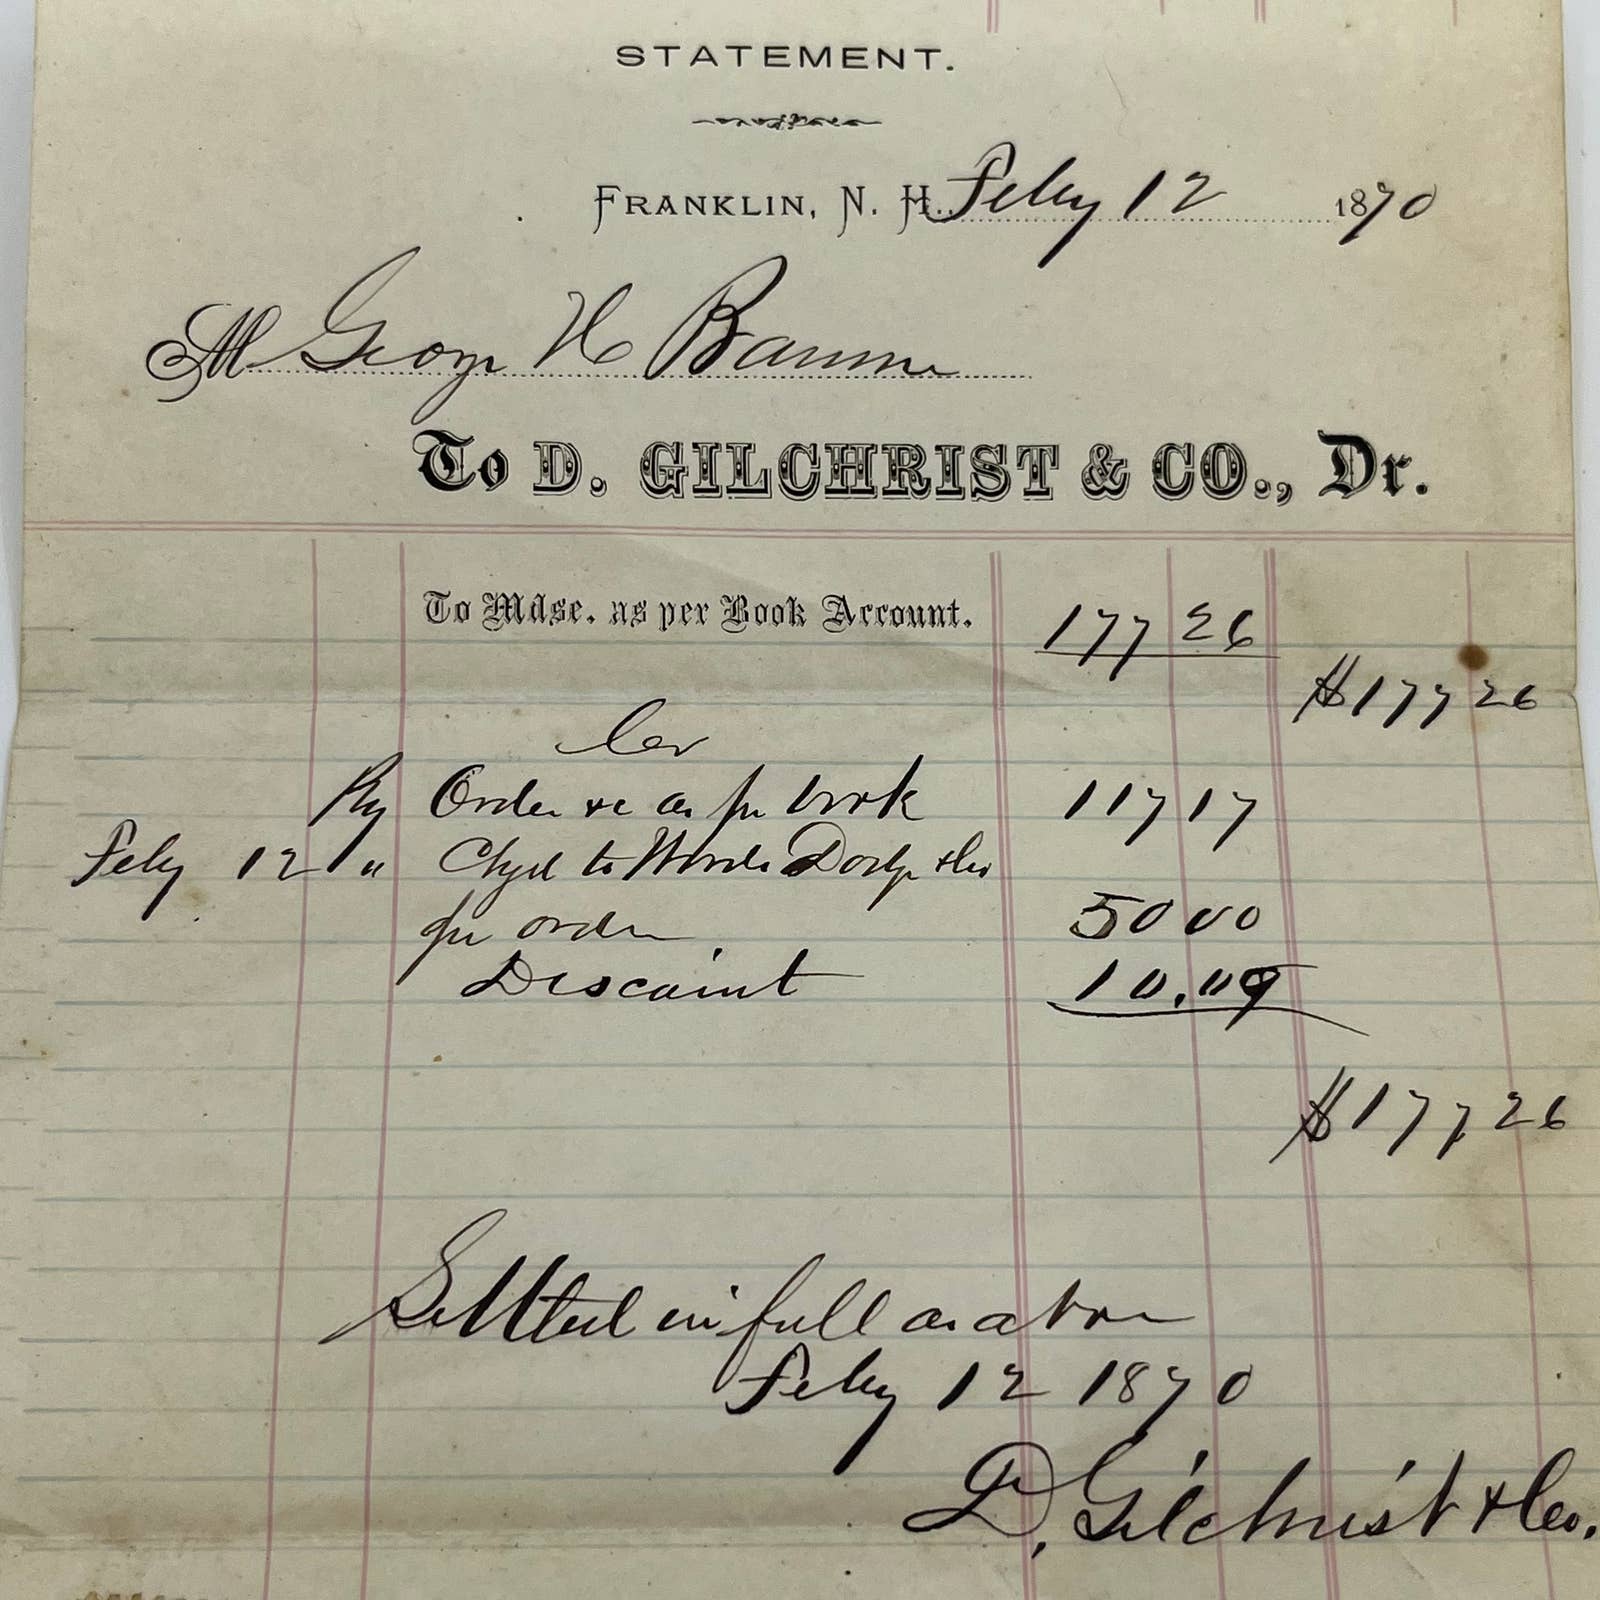 STATEMENT.
FRANKLIN, N. H. Feby 12 1870
M George H
To D. GILCHRIST & CO., Dr.
To Mdse. as per Book Account. 177 26
$177 26
Cr
By Order &c as per book 117 17
Feby 12 " Chgd to Dodge & Co
per order 50 00
Discount 10.09
$177 26
Settled in full as above
Feby 12 1870
D. Gilchrist & Co.